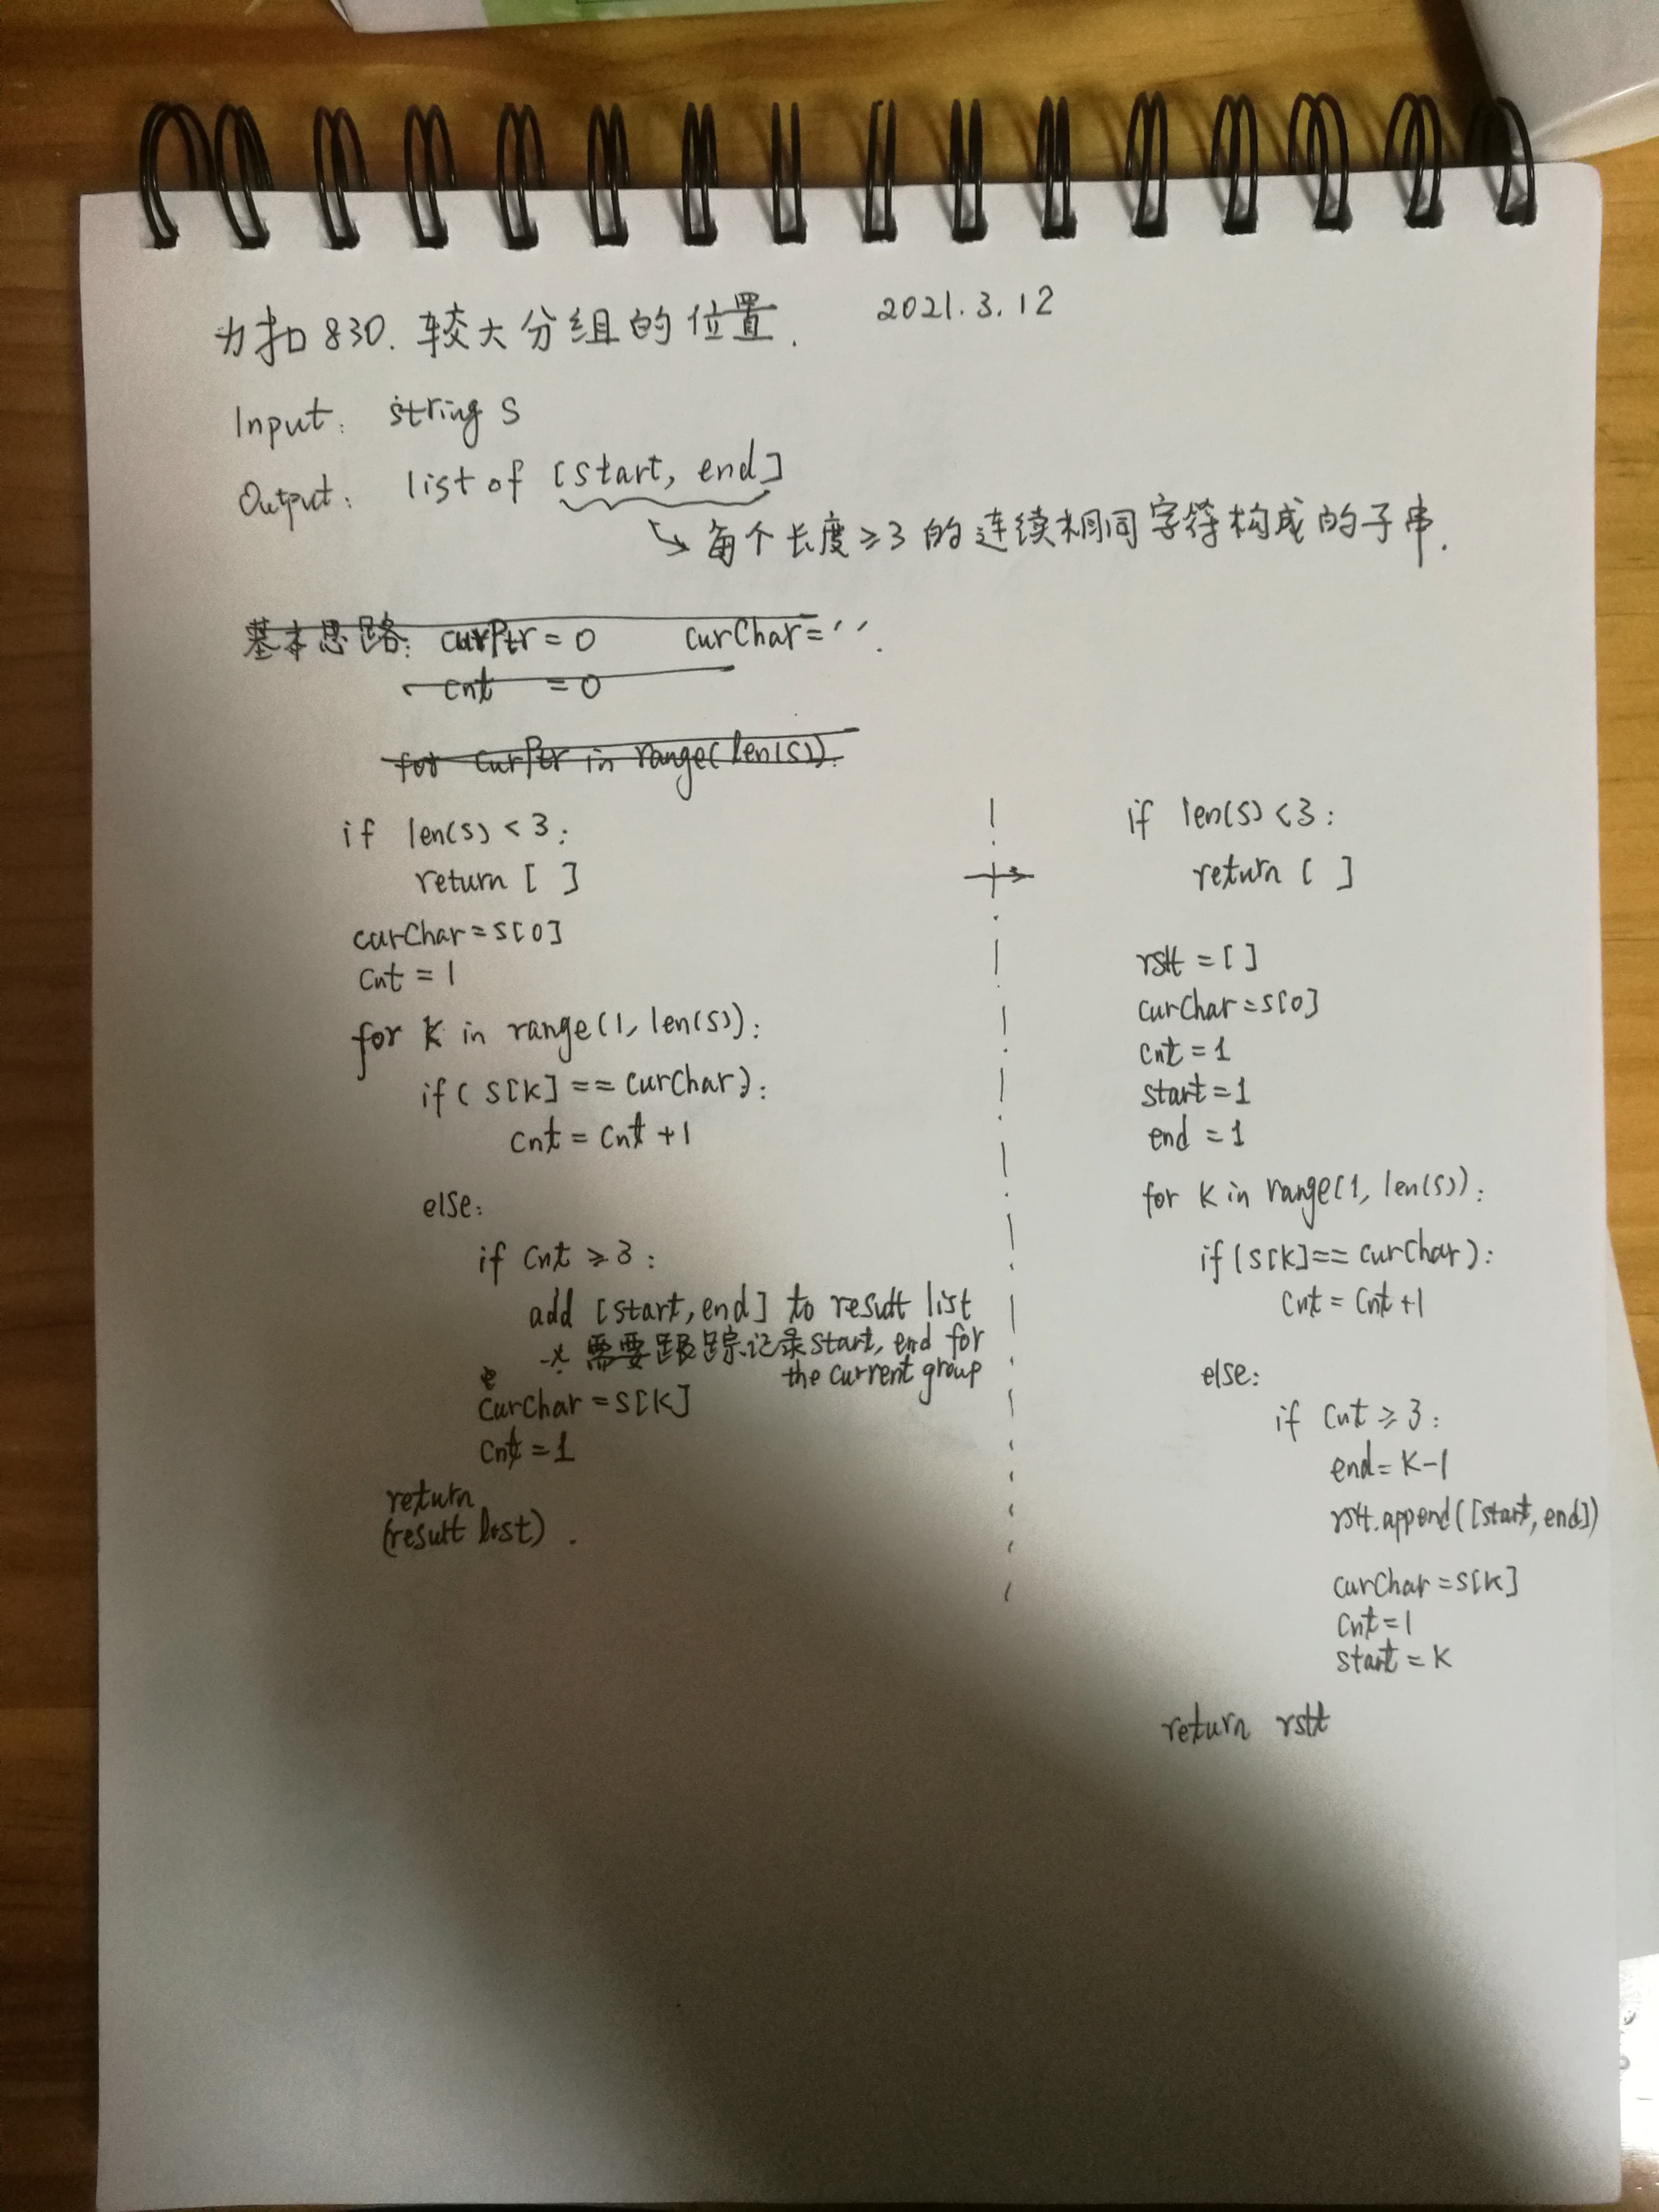 力扣830. 较大分组的位置. 2021.3.12
Input: string S
Output: list of [start, end]
每个长度≥3的连续相同字符构成的子串.
基本思路: curPtr = 0 curChar = ' '.
cnt = 0
for curPtr in range(len(S)):
if len(S) < 3:
return [ ]
curChar = S[0]
cnt = 1
for K in range(1, len(S)):
if( S[K] == curChar):
cnt = cnt + 1
else:
if cnt ≥ 3:
add [start, end] to result list
需要跟踪记录start, end for
the current group
curChar = S[K]
cnt = 1
return
(result list).
if len(S) < 3:
return [ ]
rslt = [ ]
curChar = S[0]
cnt = 1
start = 1
end = 1
for K in range(1, len(S)):
if (S[K] == curChar):
cnt = cnt + 1
else:
if cnt ≥ 3:
end = K-1
rslt.append([start, end])
curChar = S[K]
cnt = 1
start = K
return rslt